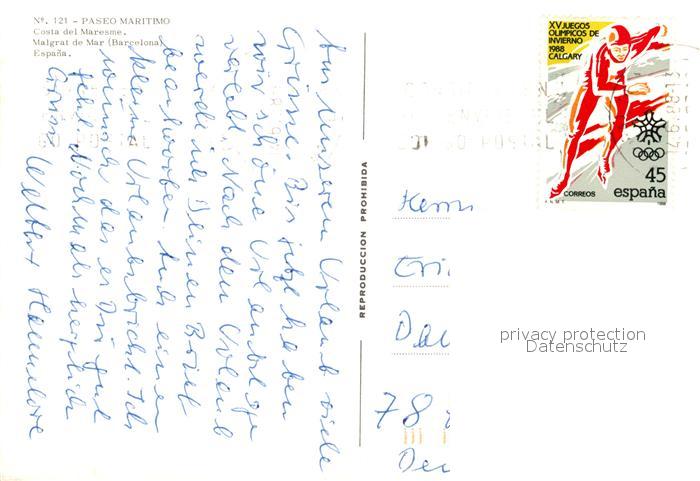 Nº. 121 - PASEO MARITIMO
Costa del Maresme.
Malgrat de Mar (Barcelona)
España.
Aus unserem Urlaub viele
Grüsse. Bis jetzt haben
wir schöne Urlaubstage
verlebt. Nach dem Urlaub
werde ich Deinen Brief
beantworten. Auch einen
kleinen Urlaubsbericht. Ich
wünsche das es Dir gut
geht. Nochmals herzlich
Grüsse
Hannelore
REPRODUCCION PROHIBIDA
XV JUEGOS
OLIMPICOS DE
INVIERNO
1988
CALGARY
45
CORREOS
españa
Herrn
78
privacy protection
Datenschutz